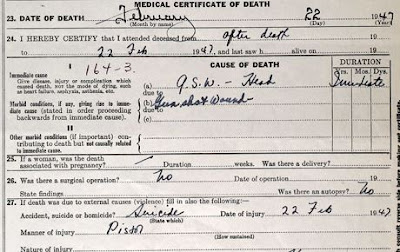 MEDICAL CERTIFICATE OF DEATH
23. DATE OF DEATH February 22 1947
(Month by name) (Day) (Year)
24. I HEREBY CERTIFY that I attended deceased from after death 19
to 22 Feb 1947, and last saw h alive on 19
I 164-3. CAUSE OF DEATH DURATION
Immediate cause
Give disease, injury or complication which caused death, not the mode of dying, such as heart failure, asphyxia, asthenia, etc.
(a) G.S.W. – Head
due to
Yrs. Mos. Days
Morbid conditions, if any, giving rise to immediate cause (stated in order proceeding backwards from immediate cause).
(b) Gun shot Wound
due to
(c)
II
Other morbid conditions (if important) contributing to death but not causally related to immediate cause.
25. If a woman, was the death associated with pregnancy? Duration weeks. Was there a delivery?
26. Was there a surgical operation? No Date of operation 19
State findings Was there an autopsy? No
27. If death was due to external causes (violence) fill in also the following:—
Accident, suicide or homicide? Suicide Date of injury 22 Feb 1947
(State which)
Manner of injury Pistol
(How sustained)
Nature of injury